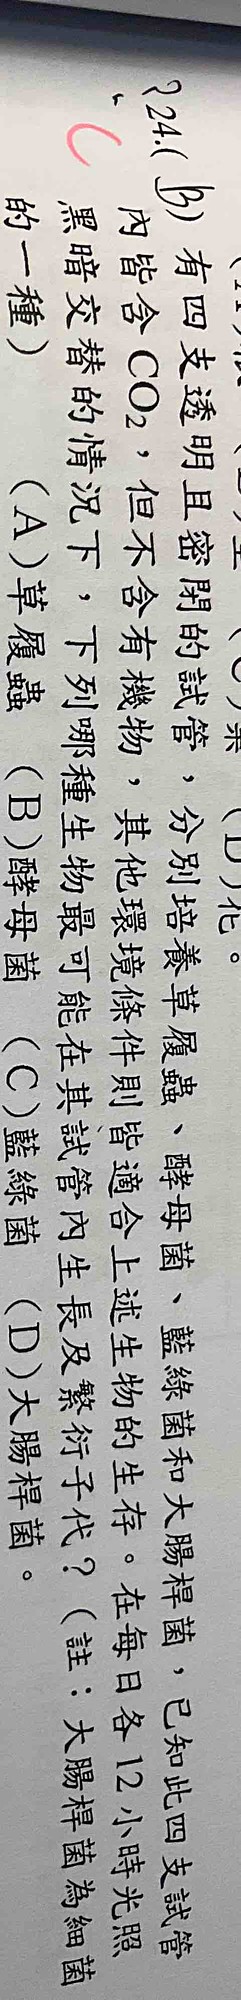 (D)化。
?24.(B)有四支透明且密閉的試管，分別培養草履蟲、酵母菌、藍綠菌和大腸桿菌，已知此四支試管
內皆含CO₂，但不含有機物，其他環境條件則皆適合上述生物的生存。在每日各12小時光照
C
黑暗交替的情況下，下列哪種生物最可能在其試管內生長及繁衍子代？（註：大腸桿菌為細菌
的一種） (A)草履蟲 (B)酵母菌 (C)藍綠菌 (D)大腸桿菌。